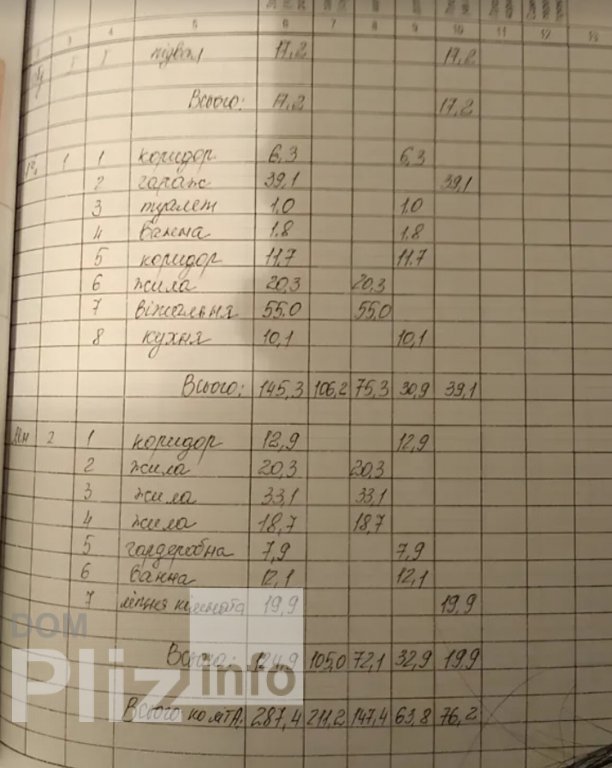 1 3 4 5 6 7 8 9 10 11 12 13
1 підвал 17,2 17,2
Всього: 17,2 17,2
1 1 коридор 6,3 6,3
2 гараж 39,1 39,1
3 туалет 1.0 1.0
4 ванна 1.8 1.8
5 коридор 11.7 11.7
6 жила 20,3 20,3
7 вітальня 55.0 55,0
8 кухня 10,1 10,1
Всього: 145,3 106,2 75,3 30,9 39,1
2 1 коридор 12,9 12,9
2 жила 20,3 20,3
3 жила 33,1 33,1
4 жила 18,7 18,7
5 гардеробна 7,9 7,9
6 ванна 12,1 12,1
7 літня кімната 19,9 19,9
Всього: 124,9 105,0 72,1 32,9 19,9
Всього по літ А: 287,4 211,2 147,4 63,8 76,2
DOM
Pliz info